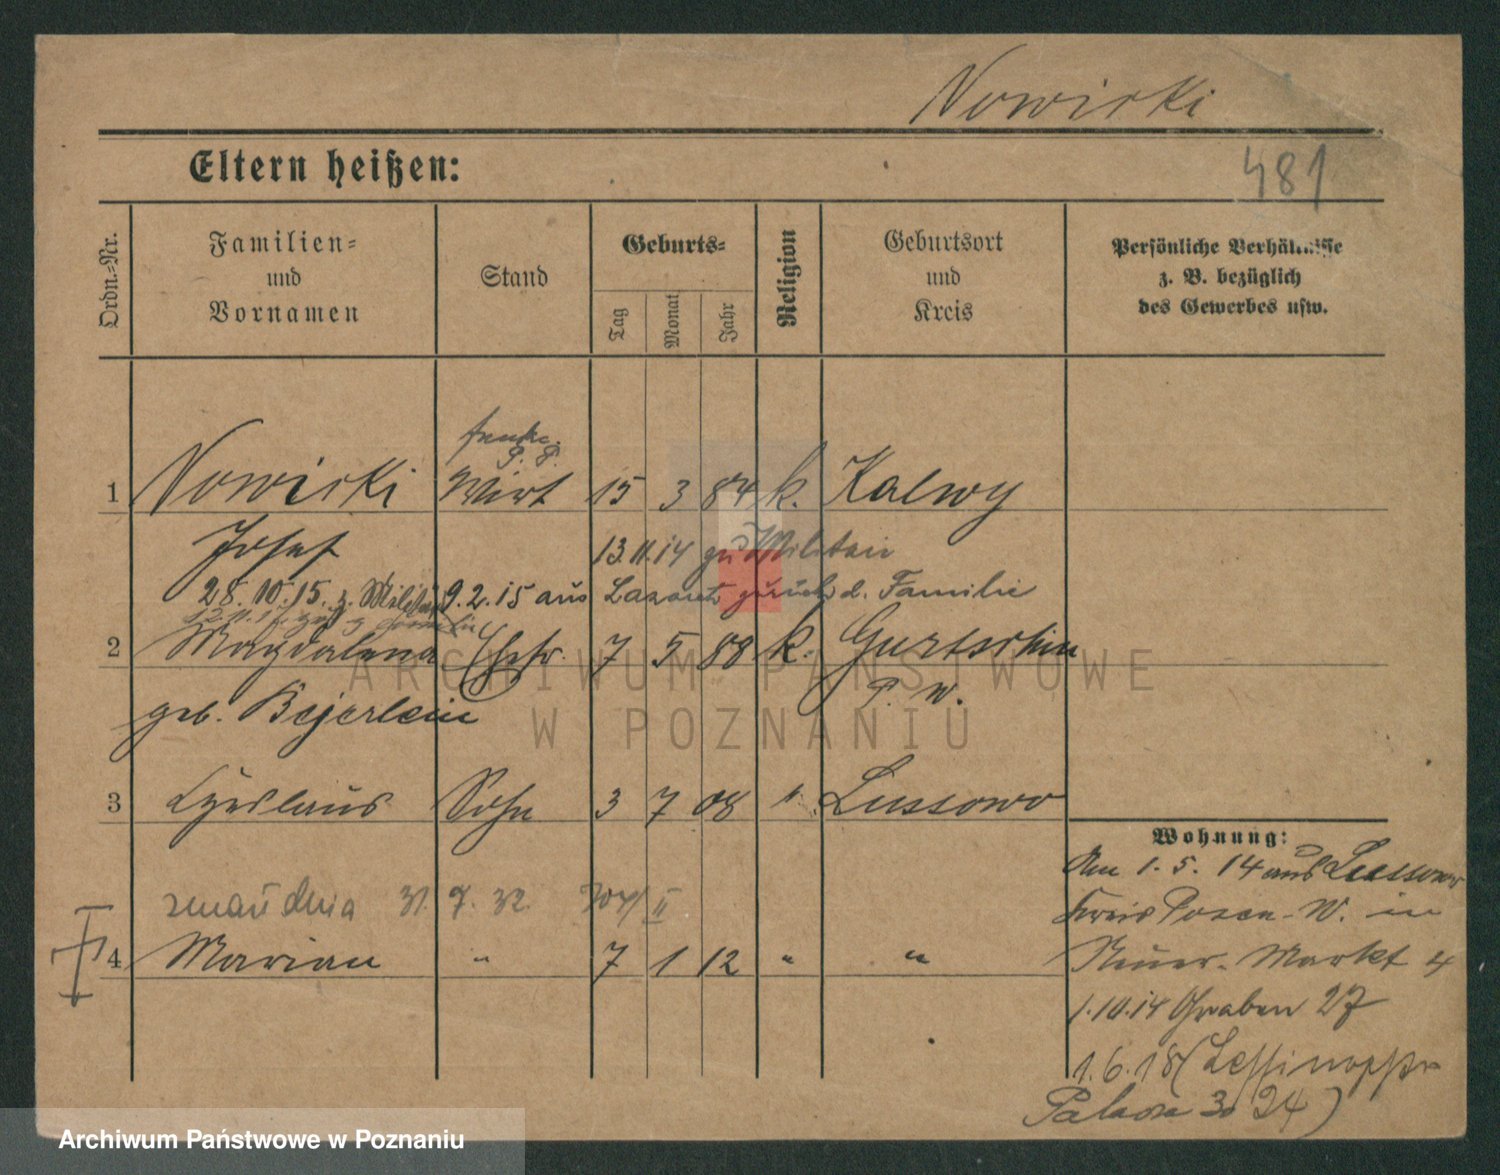 Nowicki
481
Eltern heißen:
Ordn.-Nr.
Familien-
und
Vornamen
Stand
Geburts-
Tag
Monat
Jahr
Religion
Geburtsort
und
Kreis
Persönliche Verhältnisse
z. B. bezüglich
des Gewerbes usw.
1 Nowicki Wirt 15 3 84 k. Kalwy
Josef 13.11.14 zu Militair
28.10.15. z. Militär 9.2.15 aus Lazarett zurück z. Familie
2 Magdalena Ehefr. 7 5 88 k. Gurtschin
geb. Bejerlein P. W.
3 Czeslaus Sohn 3 7 08 " Lussowo
zmarł dnia 31. 7. 32. II
4 Marian " 7 1 12 " "
Wohnung:
Am 1. 5. 14 aus Lussowo
Kreis Posen-W. in
Neuer-Markt 4
1.10.14 Graben 27
1.6.18
24)
ARCHIWUM PAŃSTWOWE
W POZNANIU
Archiwum Państwowe w Poznaniu